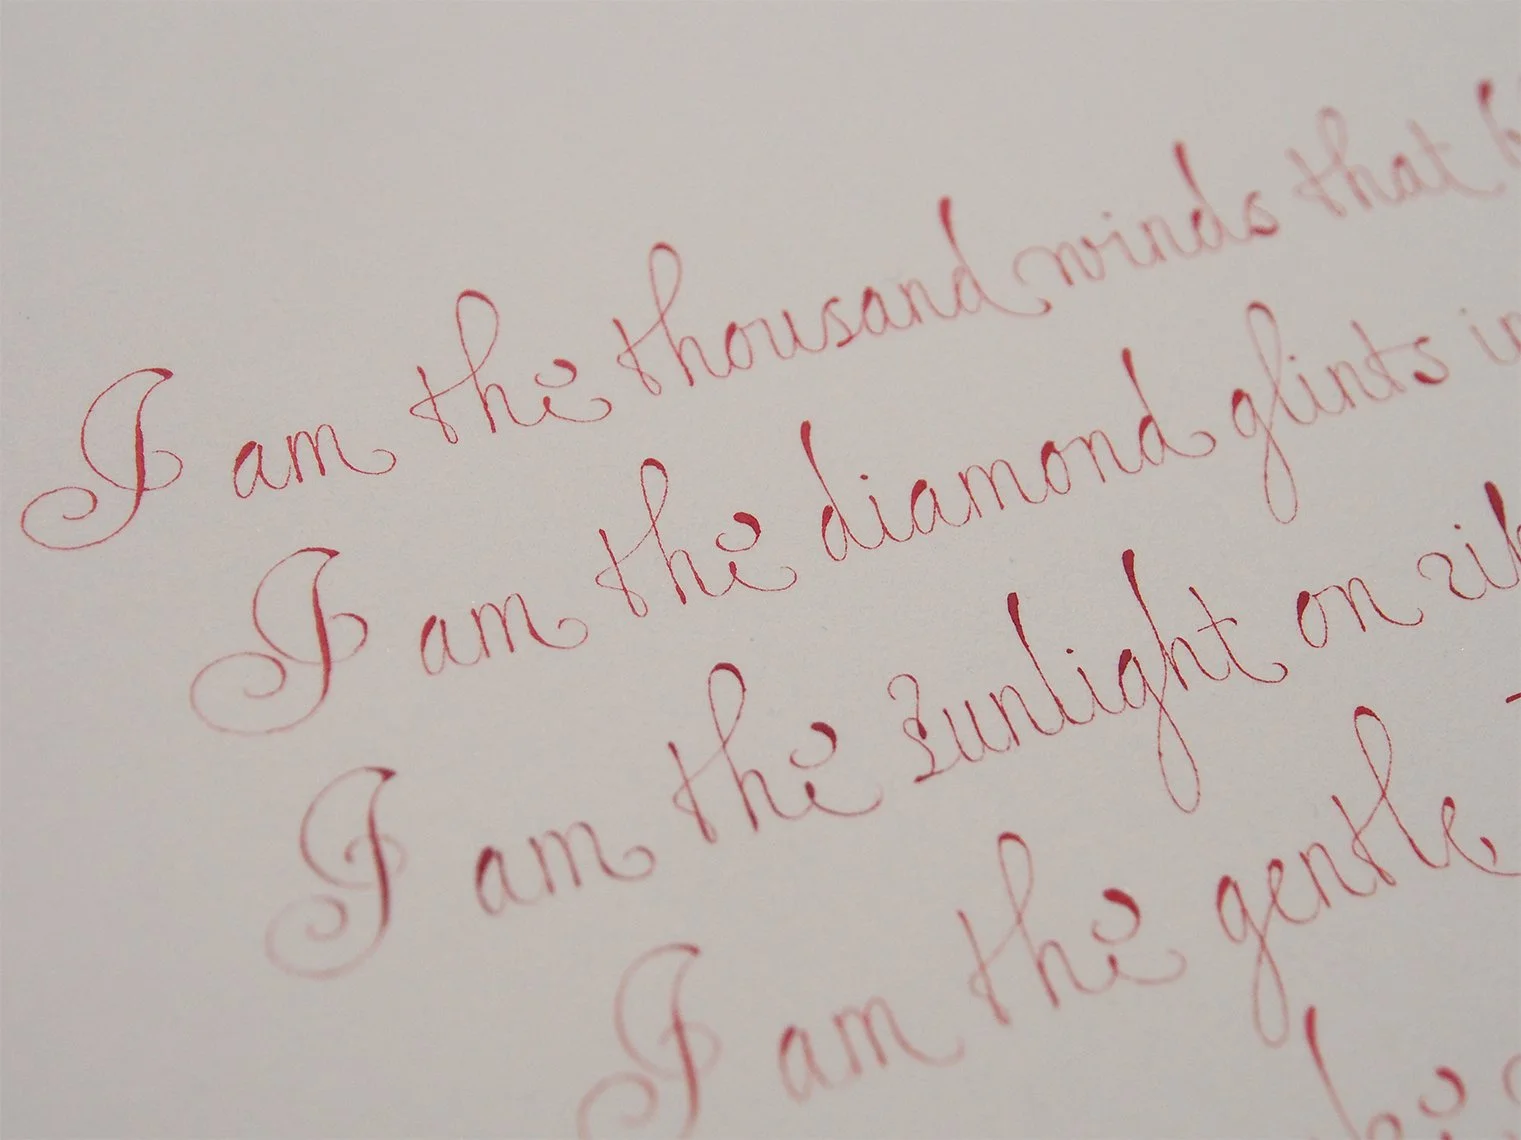 I am the thousand winds that
I am the diamond glints
I am the sunlight on
I am the gentle